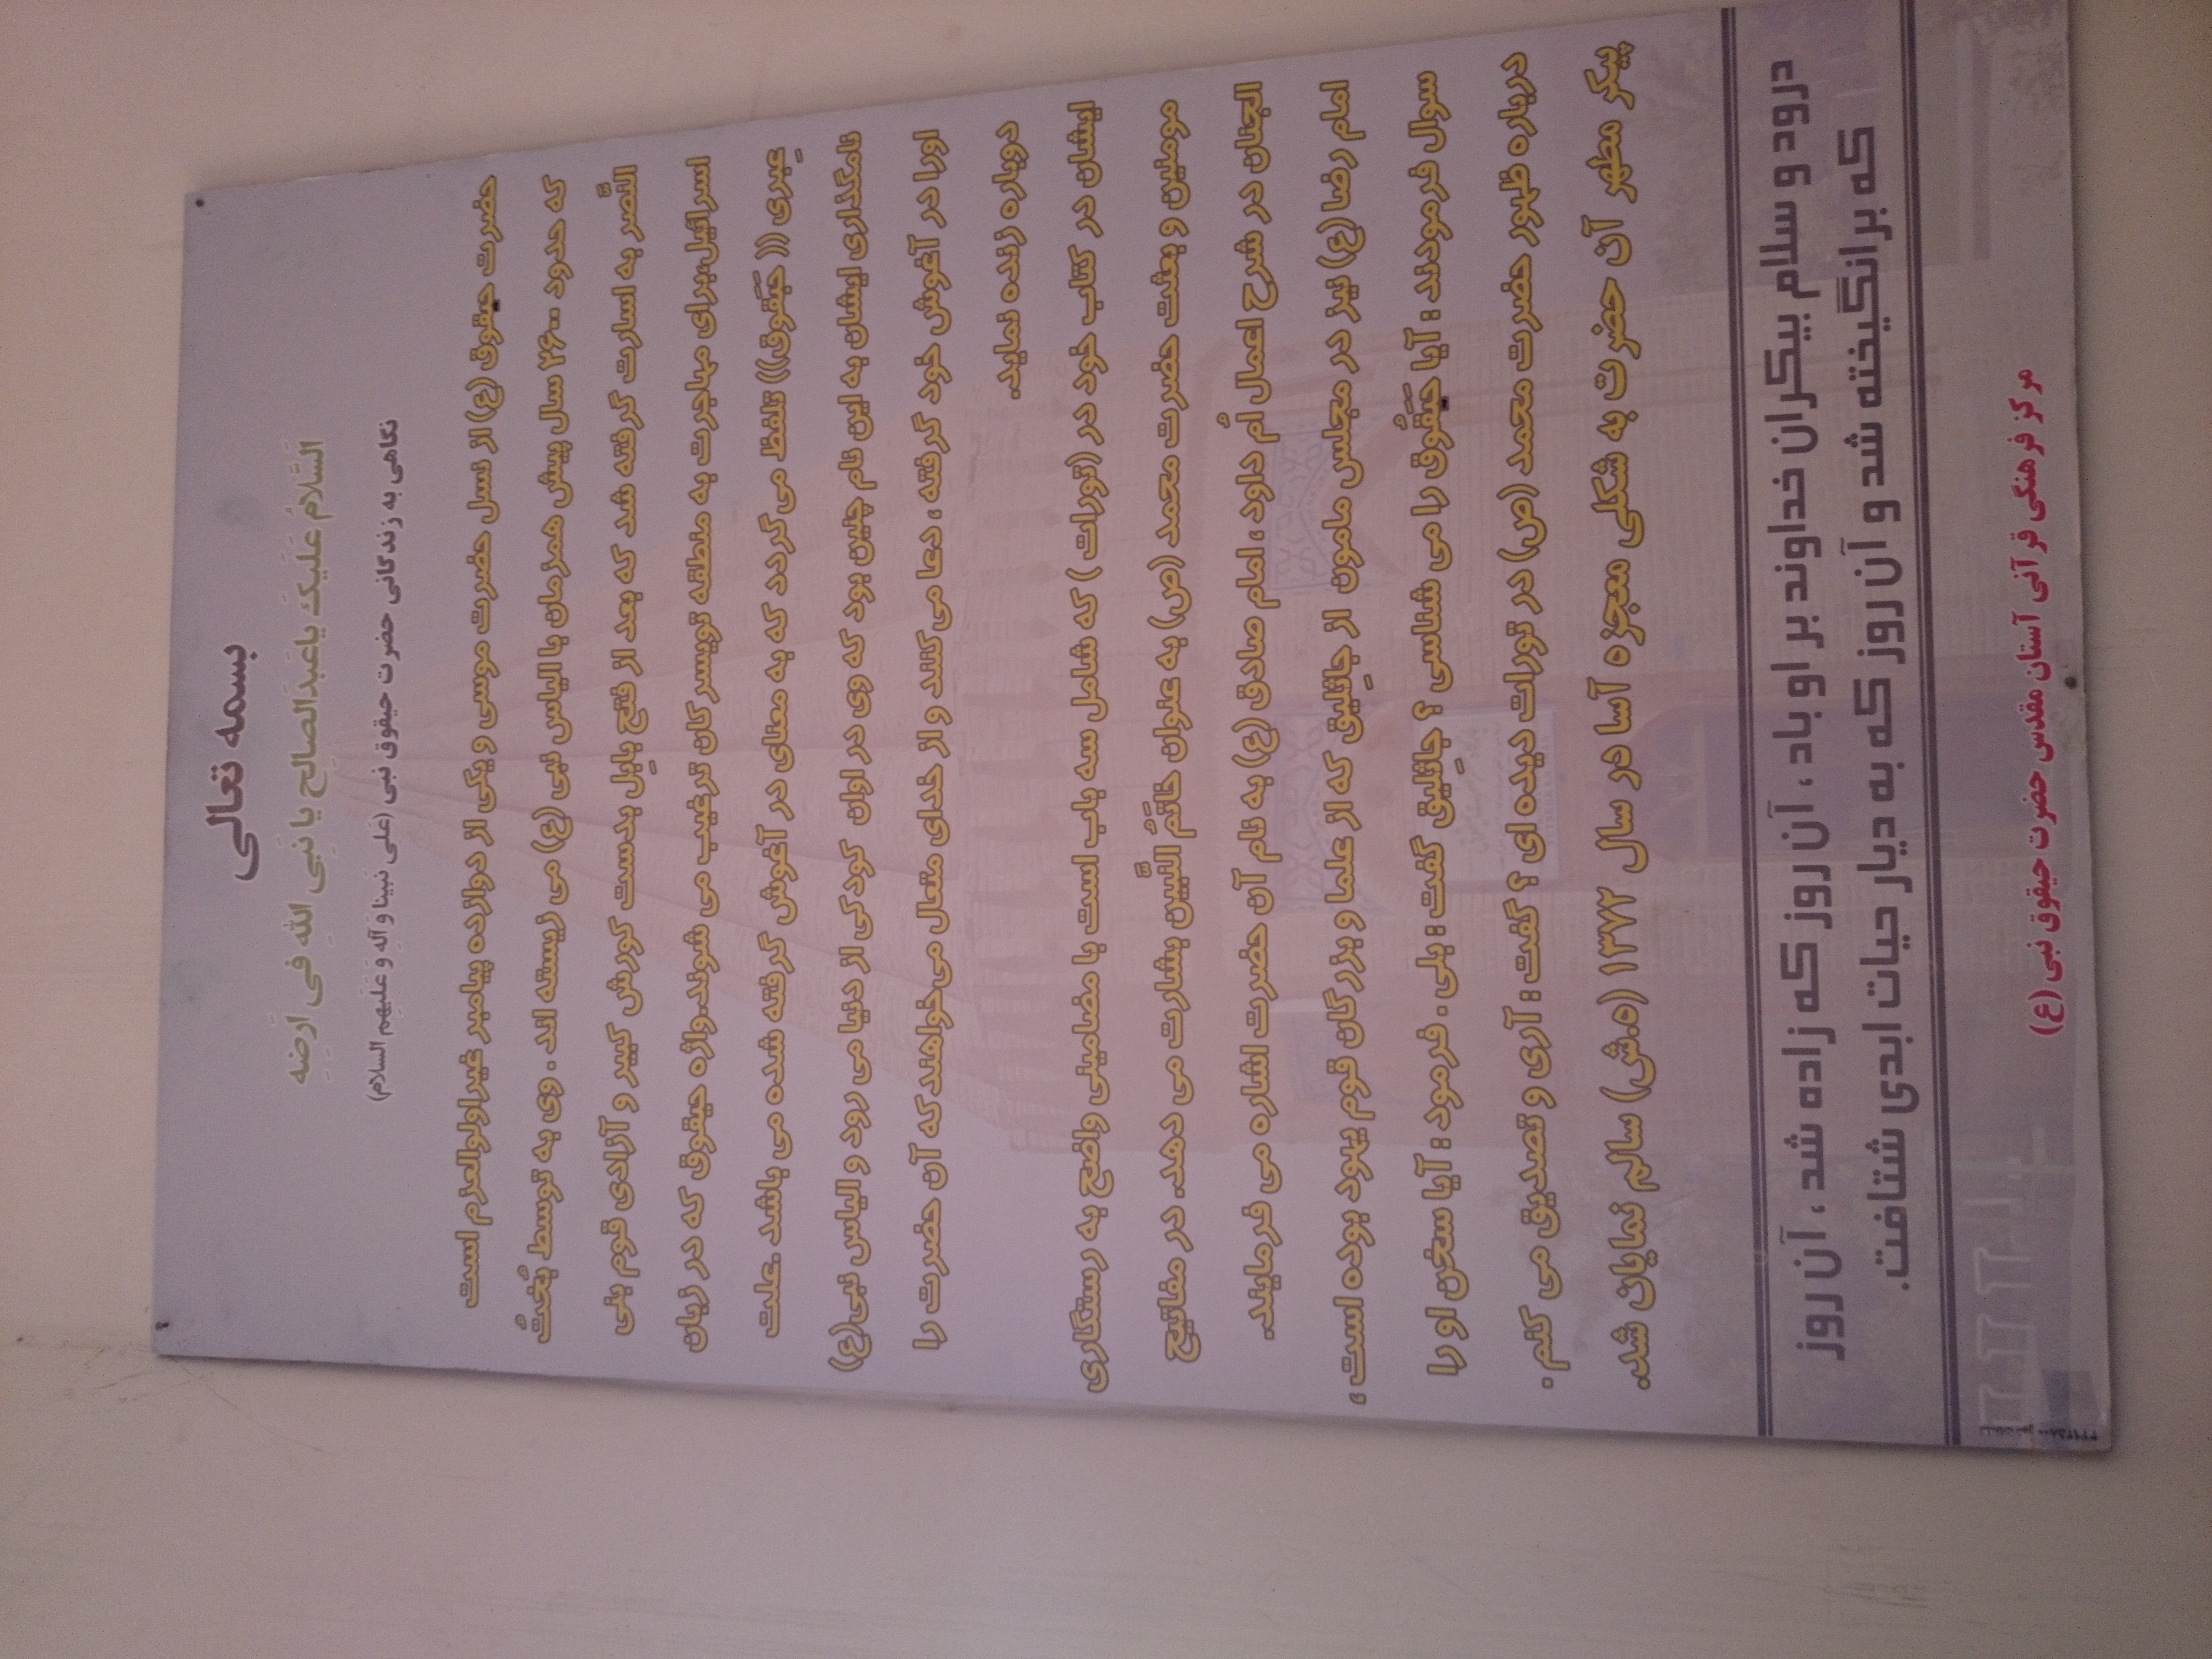 بسمه تعالی
اَلسَّلامُ عَلَیکَ یاعَبدَالصالِح یا نَبِی اللهِ فی اَرَضِهِ
نگاهی به زندگانی حضرت حیقوق نبی (عَلی نَبینا وَ آلِهِ وَ عَلَیهِم السلام)
حضرت حیقوق (ع) از نسل حضرت موسی و یکی از دوازده پیامبر غیراولوالعزم است
که حدود ۲۶۰۰ سال پیش همزمان با الیاس نبی (ع) می زیسته اند . وی به توسط بُختُ
النَّصر به اسارت گرفته شد که بعد از فتح بابِل بدست کورش کبیر و آزادی قوم بنی
اسرائیل،برای مهاجرت به منطقه تویسرکان ترغیب می شوند.واژه حیقوق که در زبان
عِبری (( حَبَقوق)) تلفظ می گردد که به معنای در آغوش گرفته شده می باشد .علت
نامگذاری ایشان به این نام چنین بود که وی در اوان کودکی از دنیا می رود و الیاس نبی(ع)
اورا در آغوش خود گرفته ، دعا می کنند و از خدای متعال می خواهند که آن حضرت را
دوباره زنده نماید.
ایشان در کتاب خود در (تورات ) که شامل سه باب است با مضامینی واضح به رستگاری
مومنین و بعثت حضرت محمد (ص) به عنوان خاتَمُ النَّبیین بشارت می دهد. در مفاتیح
الجنان در شرح اعمال اُم داود ، امام صادق (ع) به نام آن حضرت اشاره می فرمایند.
امام رضا (ع) نیز در مجلس مامون از جاثلیق که از علما و بزرگان قوم یهود بوده است ،
سوال فرمودند : آیا حَیَقُوق را می شناسی ؟ جاثلیق گفت : بلی . فرمود : آیا سخن او را
درباره ظهور حضرت محمد (ص) در تورات دیده ای ؟ گفت : آری و تصدیق می کنم .
پیکر مطهر آن حضرت به شکلی معجزه آسا در سال ۱۳۷۲ (ه.ش) سالم نمایان شد.
درود و سلام بیکران خداوند بر او باد ، آن روز که زاده شد ، آن روز
که برانگیخته شد و آن روز که به دیار حیات ابدی شتافت.
مرکز فرهنگی قرآنی آستان مقدس حضرت حیقوق نبی (ع)